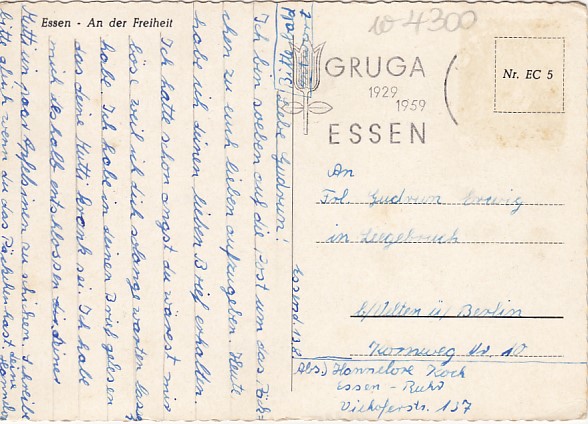 Essen - An der Freiheit
10-4300
Nr. EC 5
GRUGA
1929
1959
ESSEN
Liebe Gudrun!
Ich bin soeben auf die Post um das Päck-
chen zu euch lieben aufzugeben. Heute
habe ich deinen lieben Brief erhalten.
Ich hatte schon angst du wärest mir
böse weil ich dich solange warten lasse
habe. Ich habe in deinen Brief gelesen
das deine Mutti krank sei. Ich habe
mich deshalb entschlossen deine
Mutti ein paar Apfelsinen zu schicken. Schreibe
bitte gleich wenn du das Päckchen hast. deine Hannelore
An
Frl. Gudrun
in Leegebruch
b/Velten ü/ Berlin
Kornweg Nr. 10
Abs) Hannelore Koch
Essen - Ruhr
Viehoferstr. 137